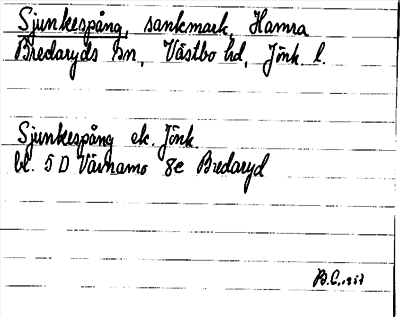 Sjunkespång, sankmark, Hamra
Bredaryds sn, Västbo hd, Jönk. l.
Sjunkespång ek. Jönk.
bl. 5 D Värnamo 8e Bredaryd
B.C.